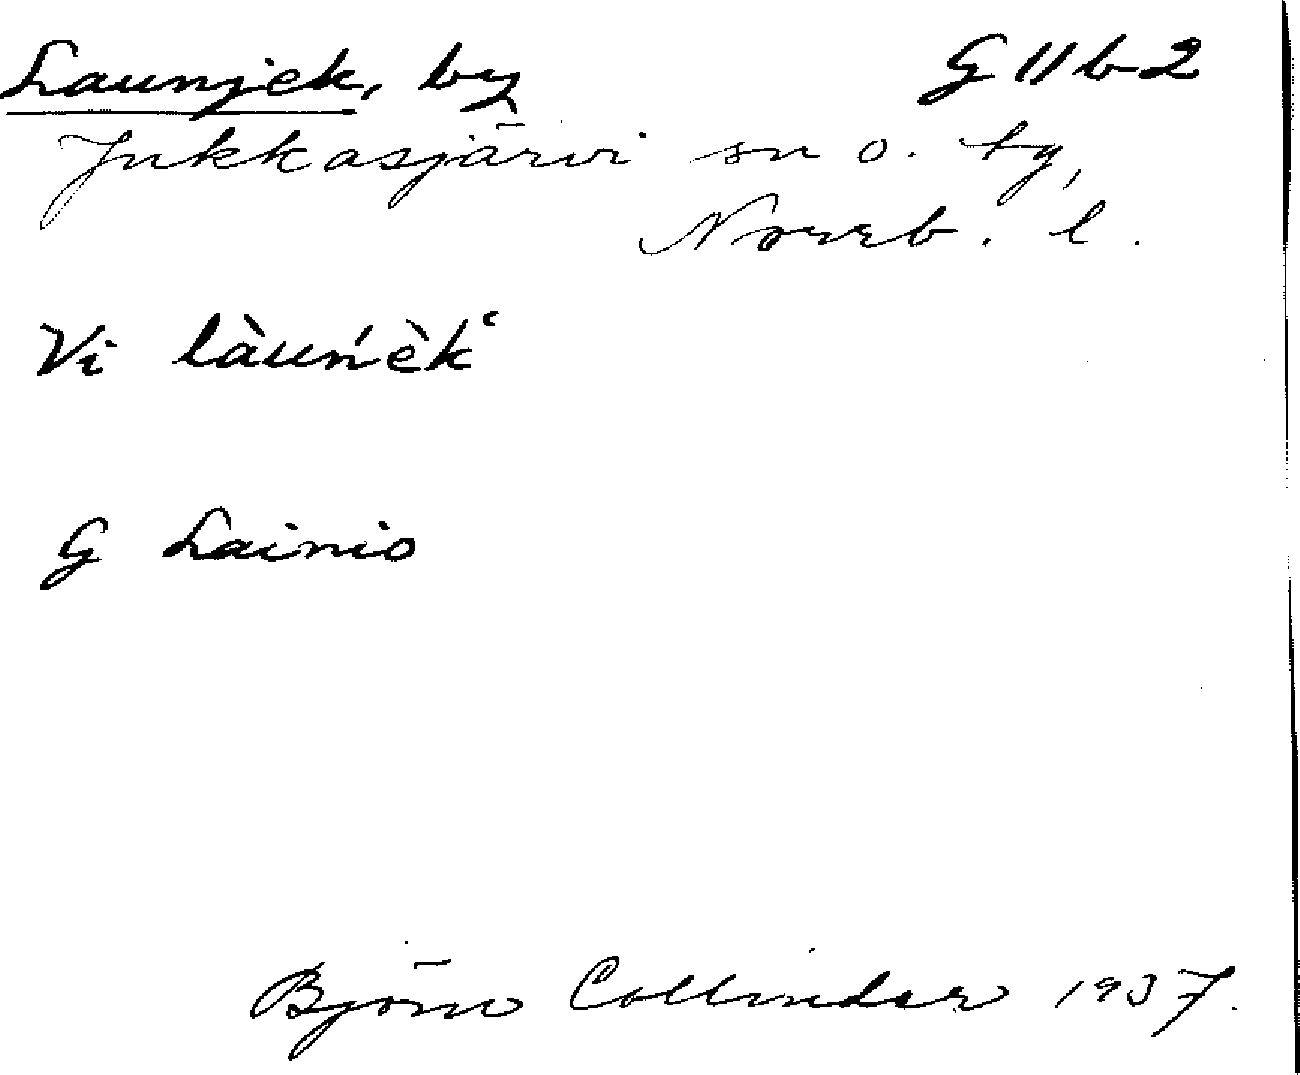 Launjek, by G 11 b 2
Jukkasjärvi sn o. tg,
Norrb. l.
Vi làuńèk‘
G Lainio
Björn Collinder 1937.